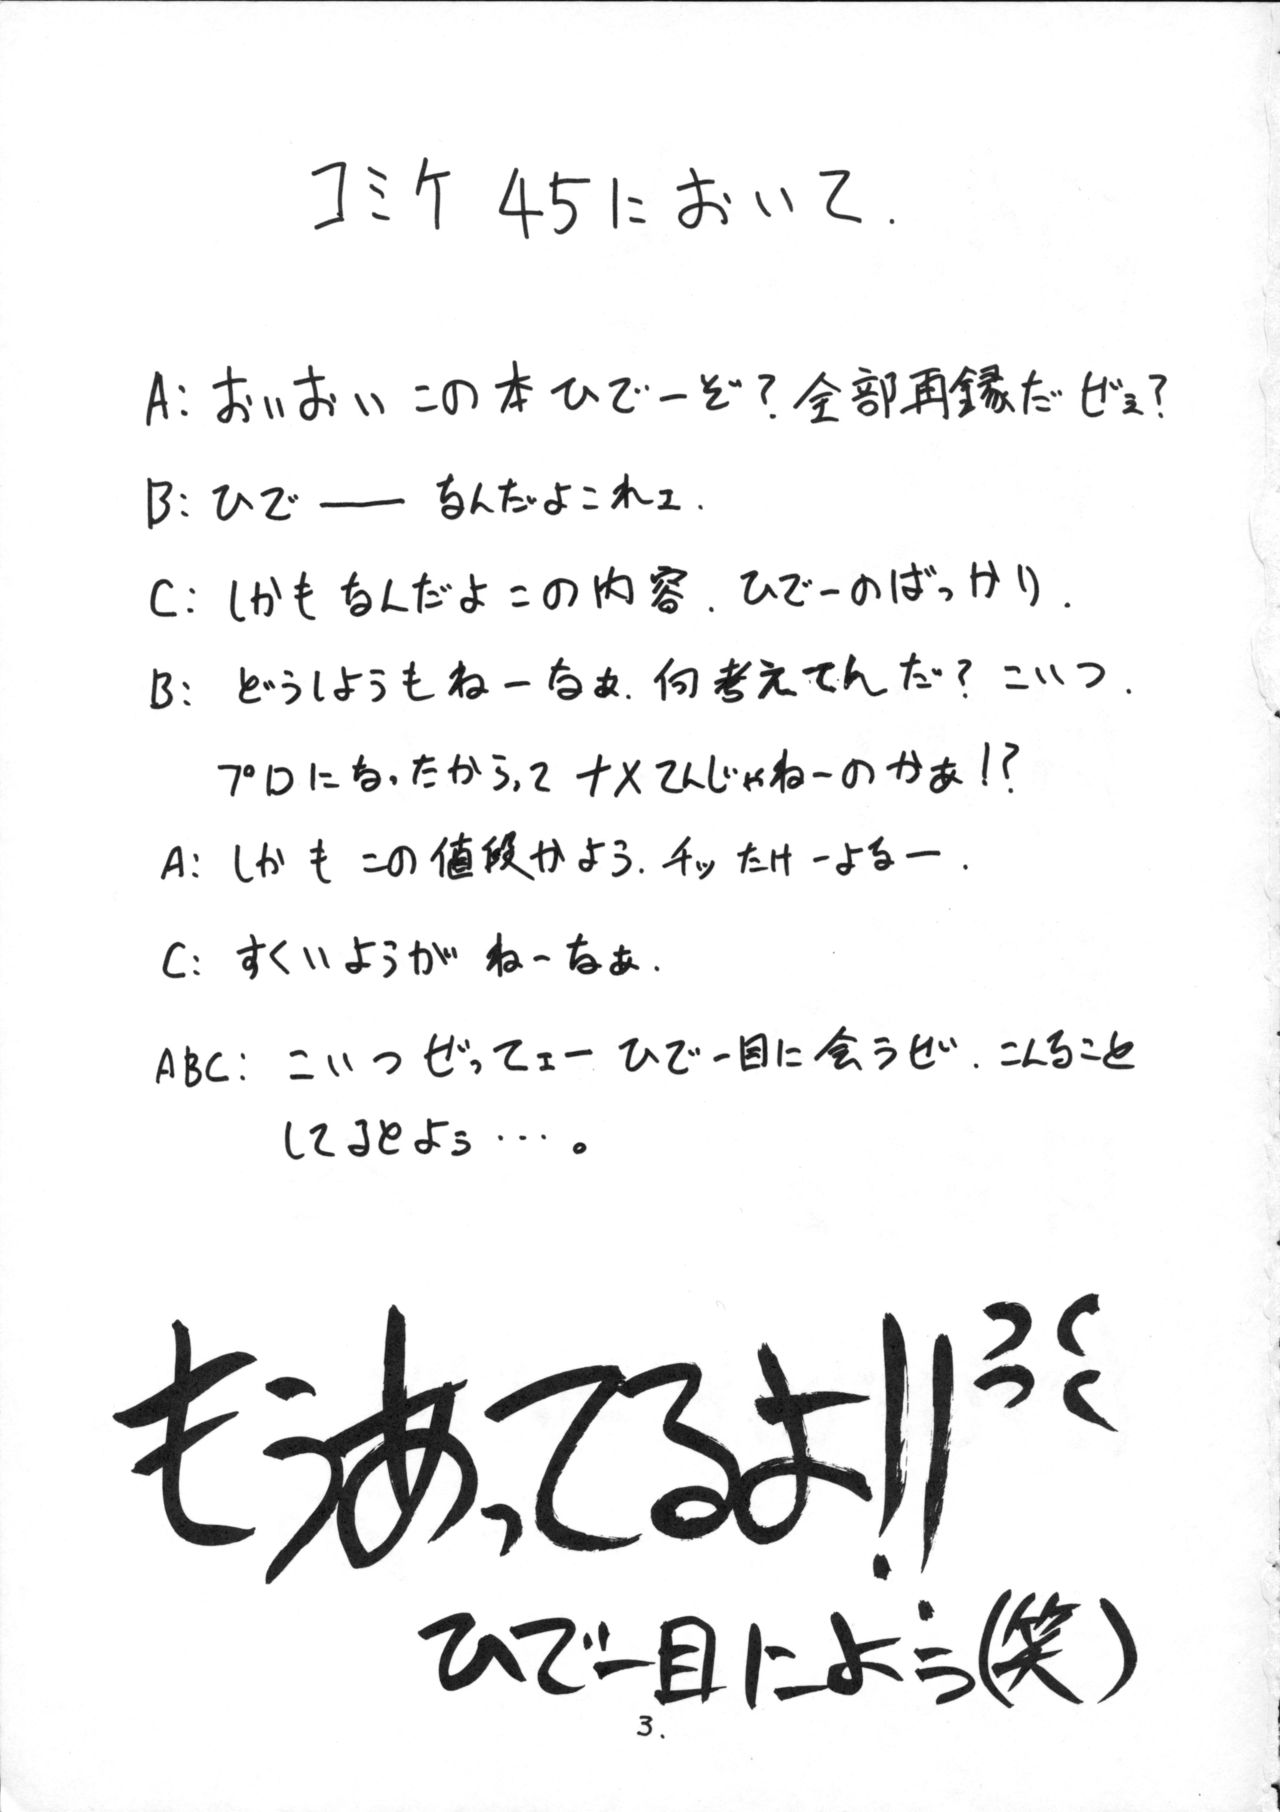 コミケ45において.
A: おいおいこの本ひでーぞ?全部再録だぜぇ?
B: ひで── なんだよこれェ.
C: しかもなんだよこの内容. ひでーのばっかり.
B: どうしようもねーなぁ. 何考えてんだ? こいつ.
プロになったからってナメてんじゃねーのかぁ!?
A: しかもこの値段かよう. チッたけーよなー.
C: すくいようがねーなぁ.
ABC: こいつぜってェーひでー目に会うぜ. こんなこと
してるとよぅ…。
もうあってるよ!!
ひでー目によぅ(笑)
3.